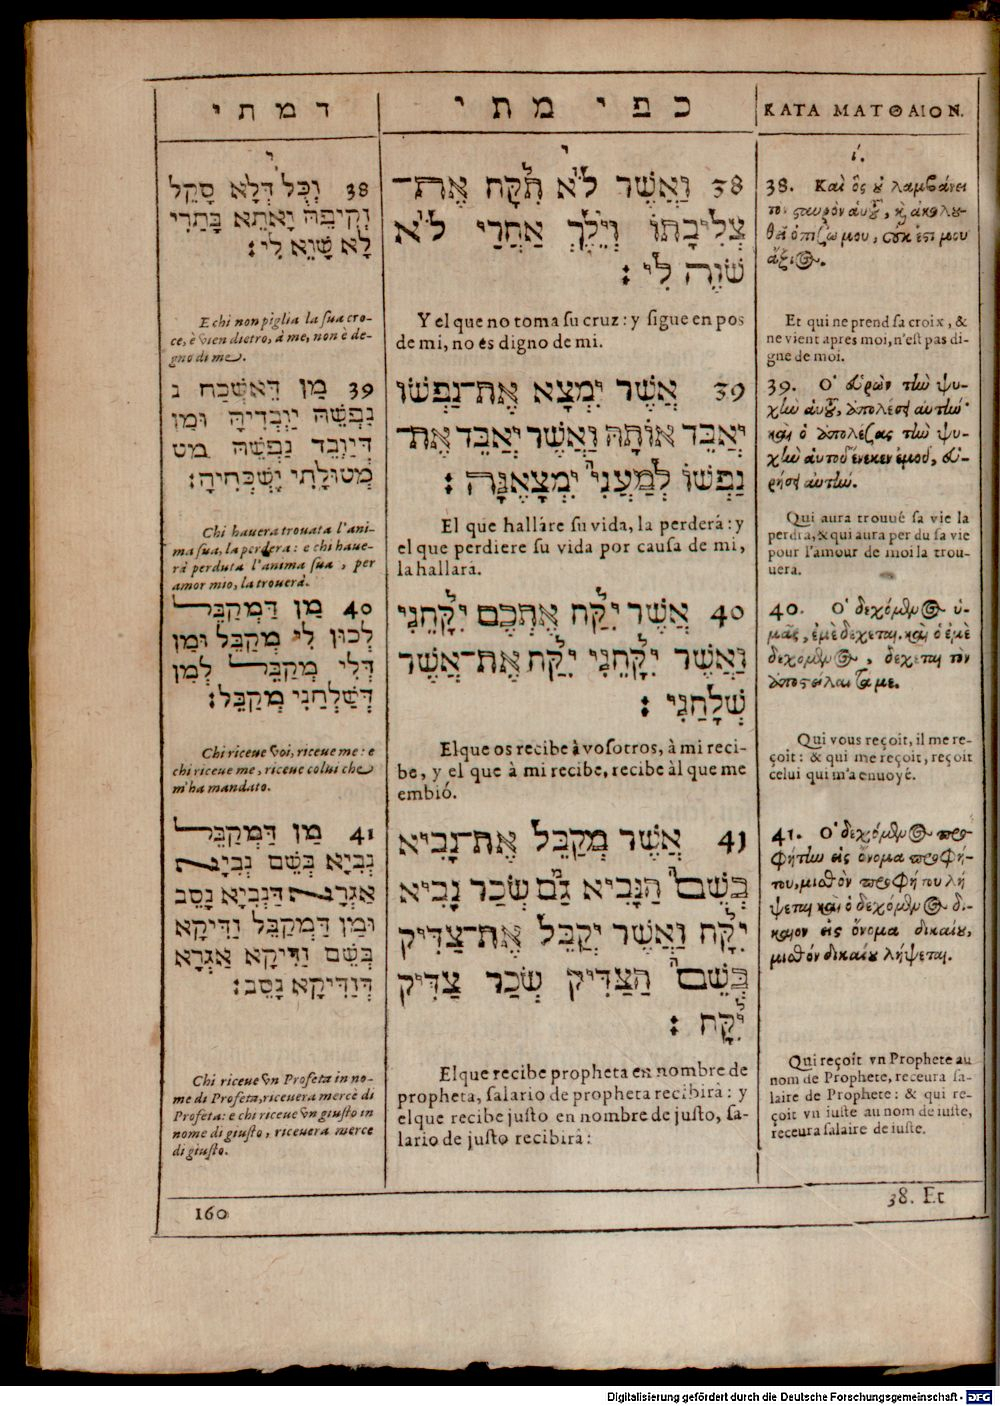 דמתי
י
38 וְכָל דְּלָא סָקֵל
וְקִיפֵהּ וָאתֵא בָּתְרִי
לָא שָׁוֵא לִי:
E chi non piglia la ſua cro-
ce, è vien dietro, à me, non è de-
gno di me.
39 מַן דֵּאשְׁכַּח נ
נַפְשֵׁהּ יַוְבְדִיהָ וּמַן
דְּיַוְבֵד נַפְשֵׁהּ מט
מֶטוּלָתִי יֶשְׁכְּחִיהָ:
Chi hauera trouata l'ani-
ma ſua, la perdera: e chi haue-
rà perduta l'anima ſua, per
amor mio, la trouerà.
40 מַן דַּמְקַבֵּל
לְכוּן לִי מְקַבֵּל וּמַן
דְּלִי מְקַבֵּל לְמַן
דְּשַׁלְחַנִי מְקַבֵּל:
Chi riceue voi, riceue me: e
chi riceue me, riceue colui che
m'ha mandato.
41 מַן דַּמְקַבֵּל
נְבִיָא בְּשֵׁם נְבִיָא
אַגְרָא דַּנְבִיָא נָסֵב
וּמַן דַּמְקַבֵּל וַדִּיקָא
בְּשֵׁם וַדִּיקָא אַגְרָא
דְּוַדִּיקָא נָסֵב:
Chi riceue vn Profeta in no-
me di Profeta, riceuera mercè di
Profeta: e chi riceue vn giuſto in
nome di giuſto, riceuera merce
di giuſto.
160
כפי מתי
י
38 וַאֲשֶׁר לֹא תִקַּח אֶת־
צְלִיבָתוֹ וְיֵלֶךְ אַחֲרַי לֹא
שׁוֶֹה לִי:
Y el que no toma ſu cruz: y ſigue en pos
de mi, no es digno de mi.
39 אֲשֶׁר יִמְצָא אֶת־נַפְשׁוֹ
יְאַבֵּד אוֹתָהּ וַאֲשֶׁר יְאַבֵּד אֶת־
נַפְשׁוֹ לְמַעֲנִי יִמְצָאֶנָּה:
El que hallàre ſu vida, la perderá: y
el que perdiere ſu vida por cauſa de mi,
la hallarà.
40 אֲשֶׁר יִקַּח אֶתְכֶם יִקָּחֵנִי
וַאֲשֶׁר יִקָּחֵנִי יִקַּח אֶת־אֲשֶׁר
שְׁלָחַנִי:
Elque os recibe à voſotros, à mi reci-
be, y el que à mi recibe, recibe àl que me
embió.
41 אֲשֶׁר מְקַבֵּל אֶת־נָבִיא
בְּשֵׁם הַנָּבִיא גַּם שְׂכַר נָבִיא
יִקָּח וַאֲשֶׁר יְקַבֵּל אֶת־צַדִּיק
בְּשֵׁם הַצַּדִּיק שְׂכַר צַדִּיק
יִקָּח:
Elque recibe propheta en nombre de
propheta, ſalario de propheta recibirà: y
elque recibe juſto en nombre de juſto, ſa-
lario de juſto recibirà:
ΚΑΤΑ ΜΑΤΘΑΙΟΝ.
ί.
38. Καὶ ὃς ȣ λαμβάνει
τὸν σταυρὸν αὑτȣ͂, καὶ ἀκολου-
θεῖ ὀπίσω μου, οὐκ ἔστι μου
ἄξιος.
Et qui ne prend ſa croix, &
ne vient apres moi, n'eſt pas di-
gne de moi.
39. Ὁ εὑρὼν τὴν ψυ-
χὴν αὑτȣ͂, ἀπολέσει αὐτήν·
καὶ ὁ ἀπολέσας τὴν ψυ-
χὴν αὑτοῦ ἕνεκεν ἐμοῦ, εὑ-
ρήσει αὐτήν.
Qui aura trouué ſa vie la
perdra, & qui aura per du ſa vie
pour l'amour de moi la trou-
uera.
40. Ὁ δεχόμενος ὑ-
μᾶς, ἐμὲ δέχεται. καὶ ὁ ἐμὲ
δεχόμενος, δέχεται τὸν
ἀποστείλαντά με.
Qui vous reçoit, il me re-
çoit: & qui me reçoit, reçoit
celui qui m'a enuoyé.
41. Ὁ δεχόμενος προ-
φήτην εἰς ὄνομα προφή-
του, μισθὸν προφήτου λή-
ψεται καὶ ὁ δεχόμενος δί-
καιον εἰς ὄνομα δικαίȣ,
μισθὸν δικαίȣ λήψεται.
Qui reçoit vn Prophete au
nom de Prophete, receura ſa-
laire de Prophete: & qui re-
çoit vn iuſte au nom de iuſte,
receura ſalaire de iuſte.
38. Et
Digitalisierung gefördert durch die Deutsche Forschungsgemeinschaft - DFG